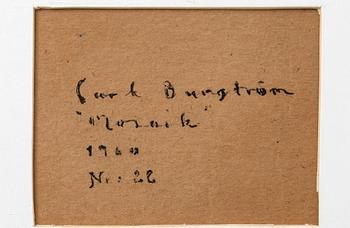 Carl Bunström
"Mosaik"
1960
Nr: 22